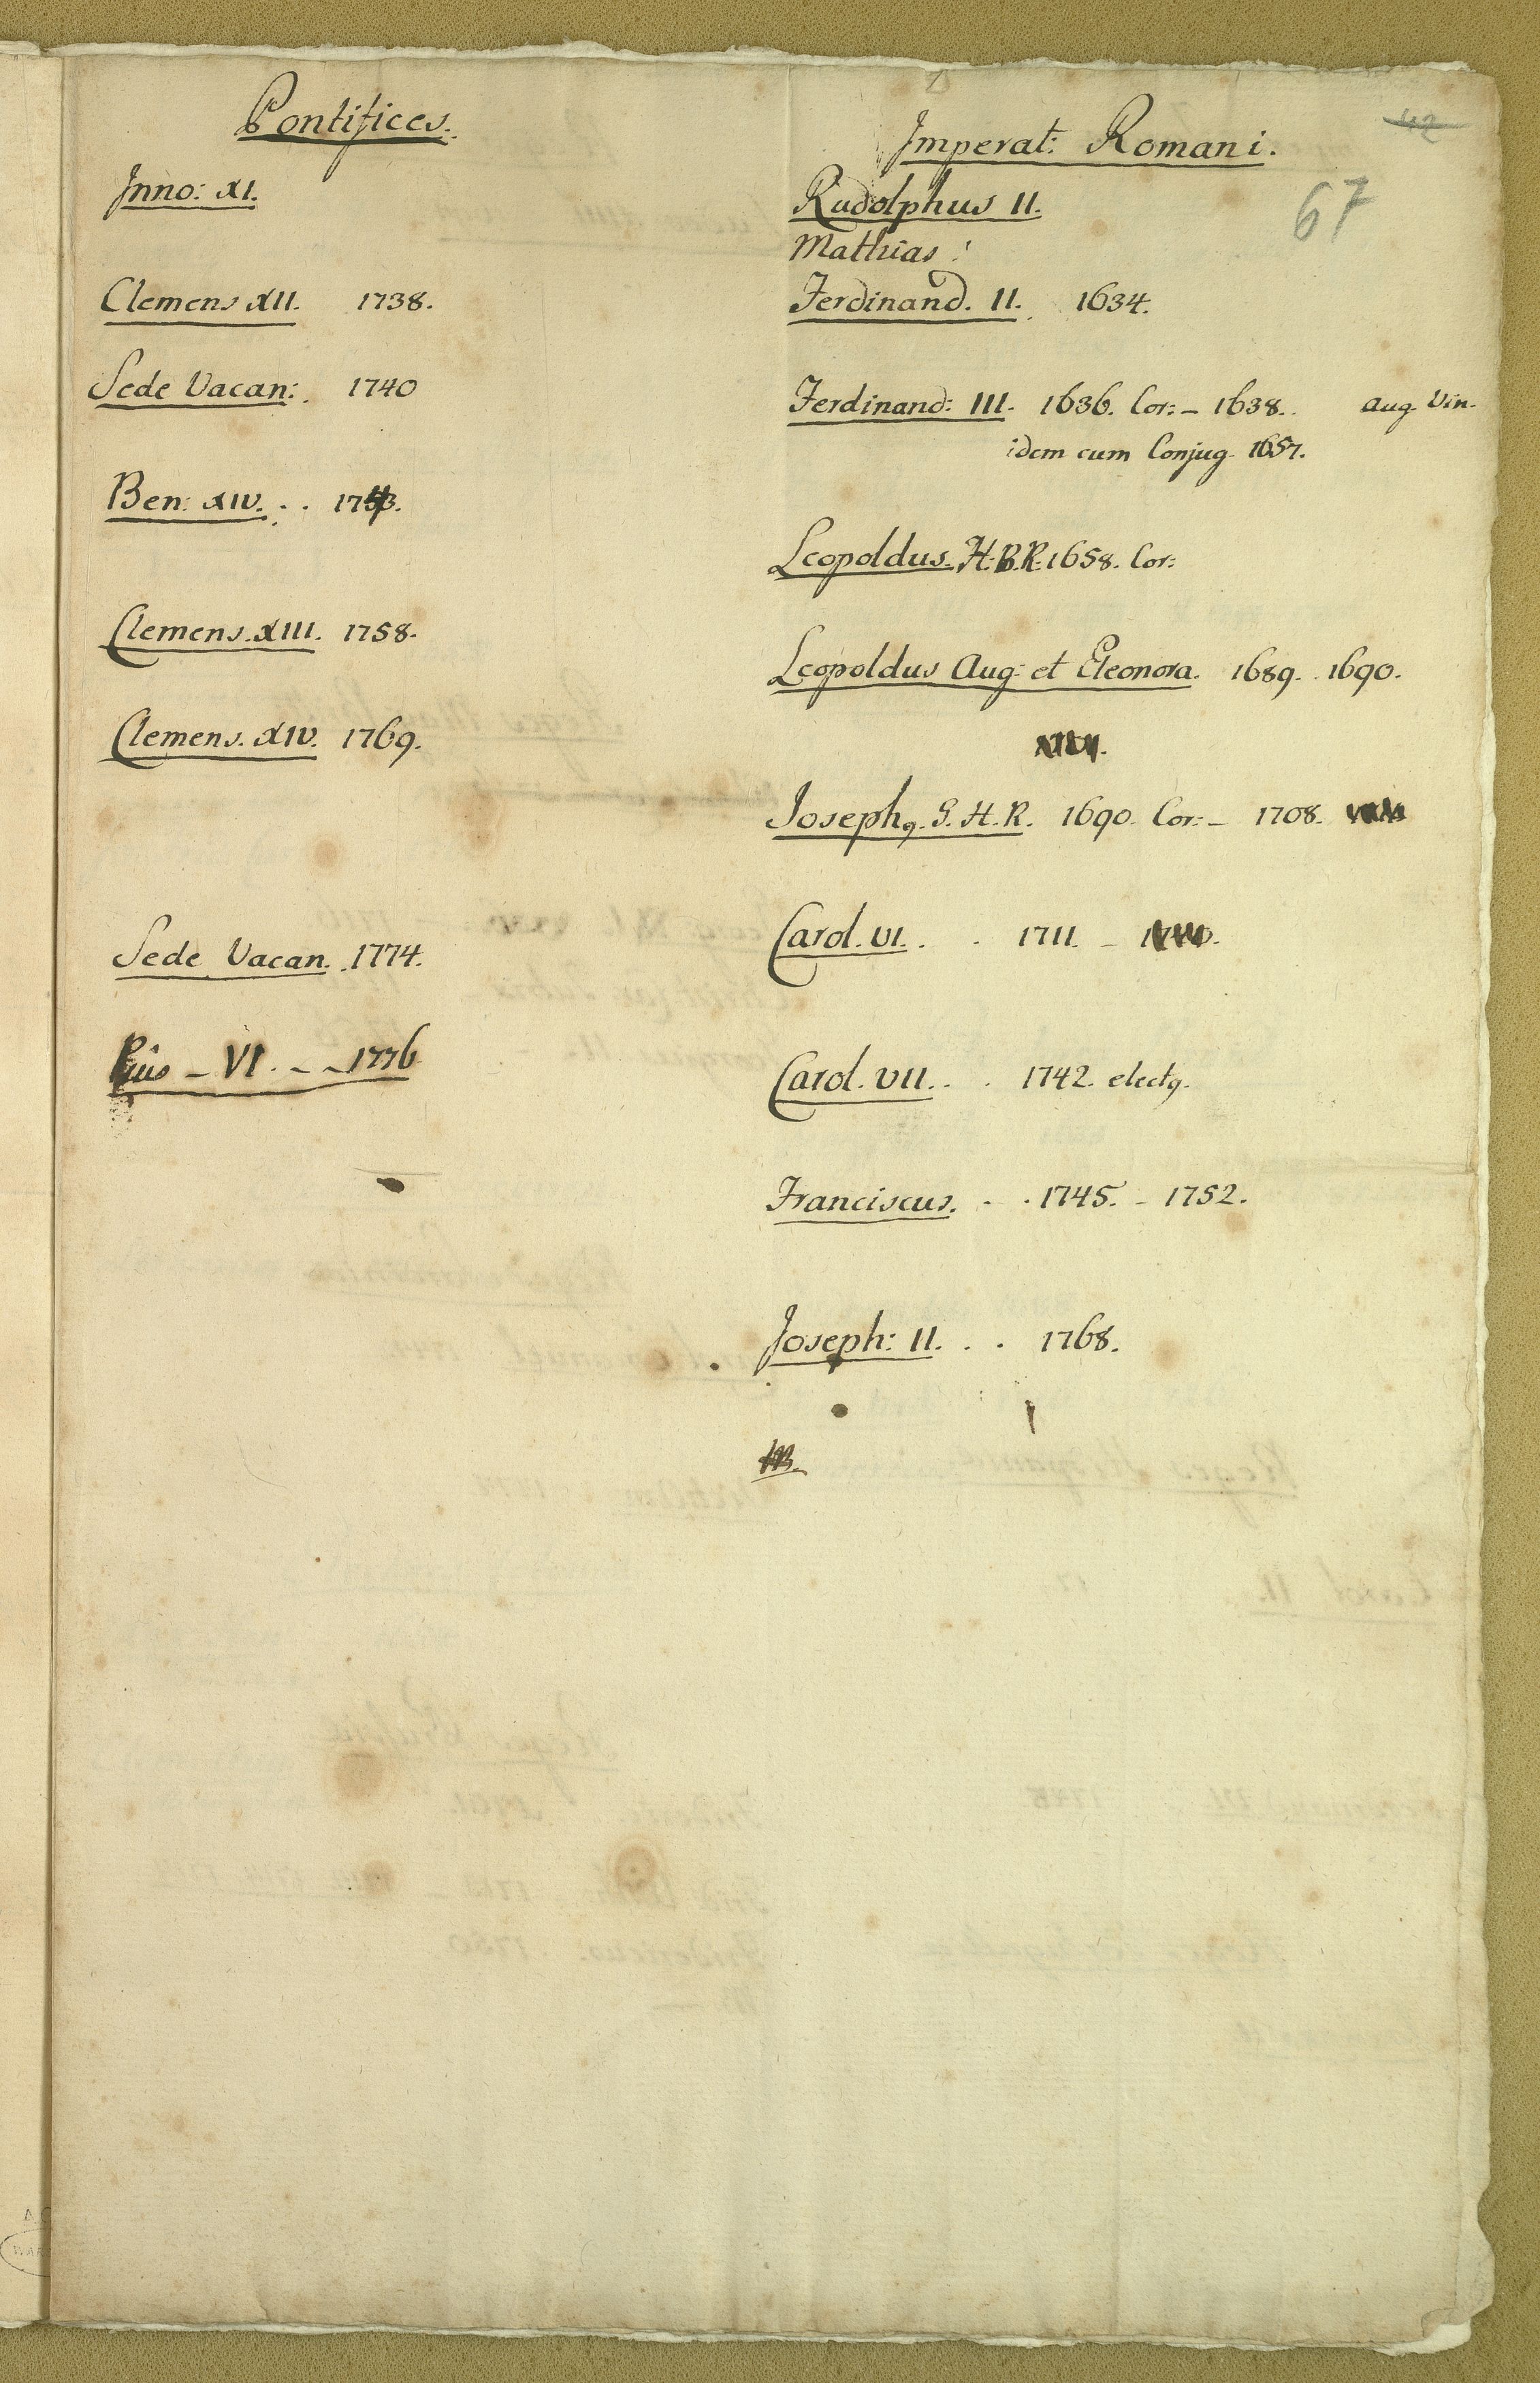 Pontifices.
Inno: XI.
Clemens XII. 1738.
Sede Vacan: 1740
Ben: XIV. . . 1743.
Clemens. XIII. 1758.
Clemens. XIV. 1769.
Sede Vacan. 1774.
Pius - VI. - - 1776
42
67
Imperat: Romani.
Rudolphus II.
Mathias:
Ferdinand. II. 1634.
Ferdinand: III. 1636. Cor: - 1638. Aug Vin.
idem cum Conjug 1657.
Leopoldus. H.B.R. 1658. Cor:
Leopoldus Aug: et Eleonora. 1689. 1690.
Josephq. S. H. R. 1690. Cor: - 1708.
Carol. VI. . . 1711. -
Carol. VII. . . 1742. electq.
Franciscus. . . 1745. - 1752.
Joseph: II. . . 1768.